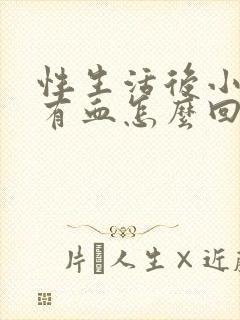 性生活後小
有血怎麼回
片 人生×近